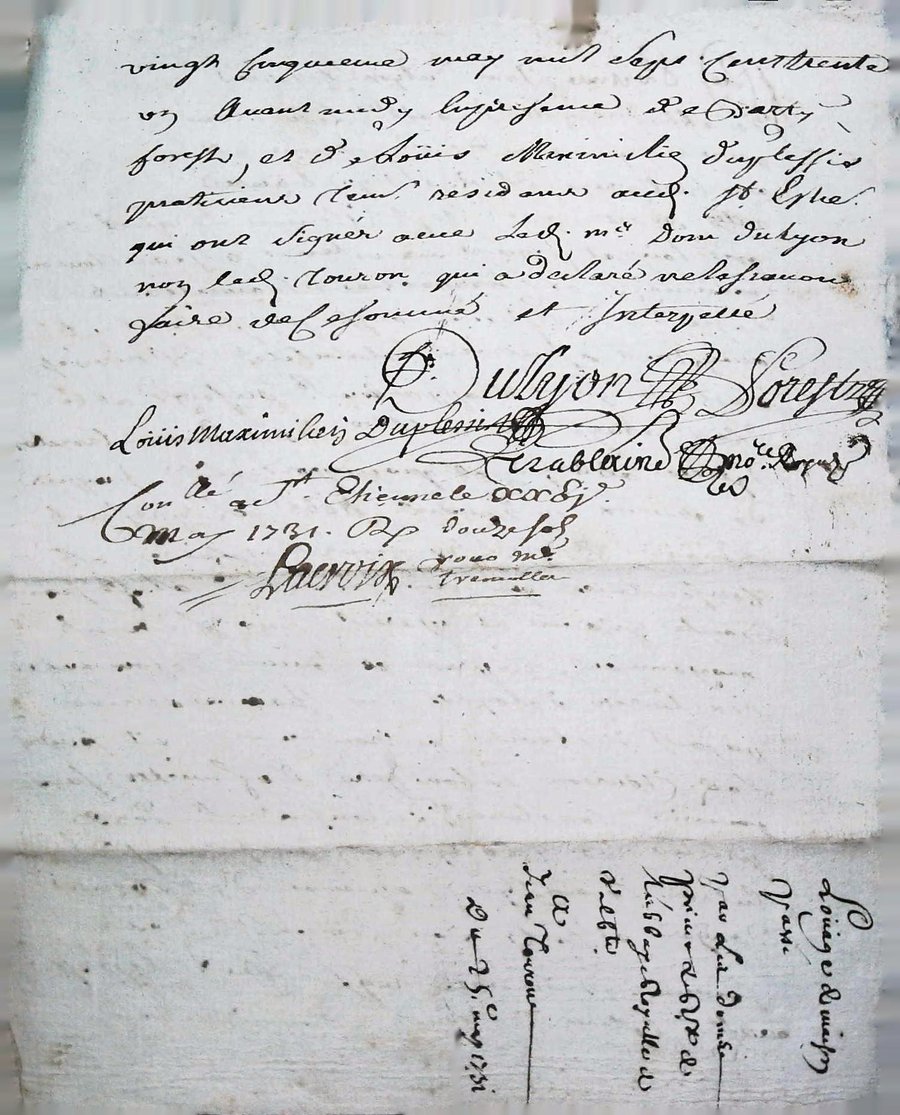 vingt Cinquieme may mil Sept Cent trente
un Avant midy En presence de
forest, et de Loüis Maximilien duplessis
praticiens Tem. residans aud. St Etne.
qui ont signés avec Led. mre Dom duLyon
non led. Touron qui a declaré ne la scavoir
faire de Ce sommé et Interpellé
D. DuLyon forest
Loüis Maximilien Duplessis
Trablaine nore. Royal
Con.llé a St. Etienne le
May 1731. R douze sols
Lacroix pour mr.
Loüage de maison
passé
par
prieur de
L'abbaye Royalle de
Valb.te
A
Jean Touron
Du 25.e may 1731